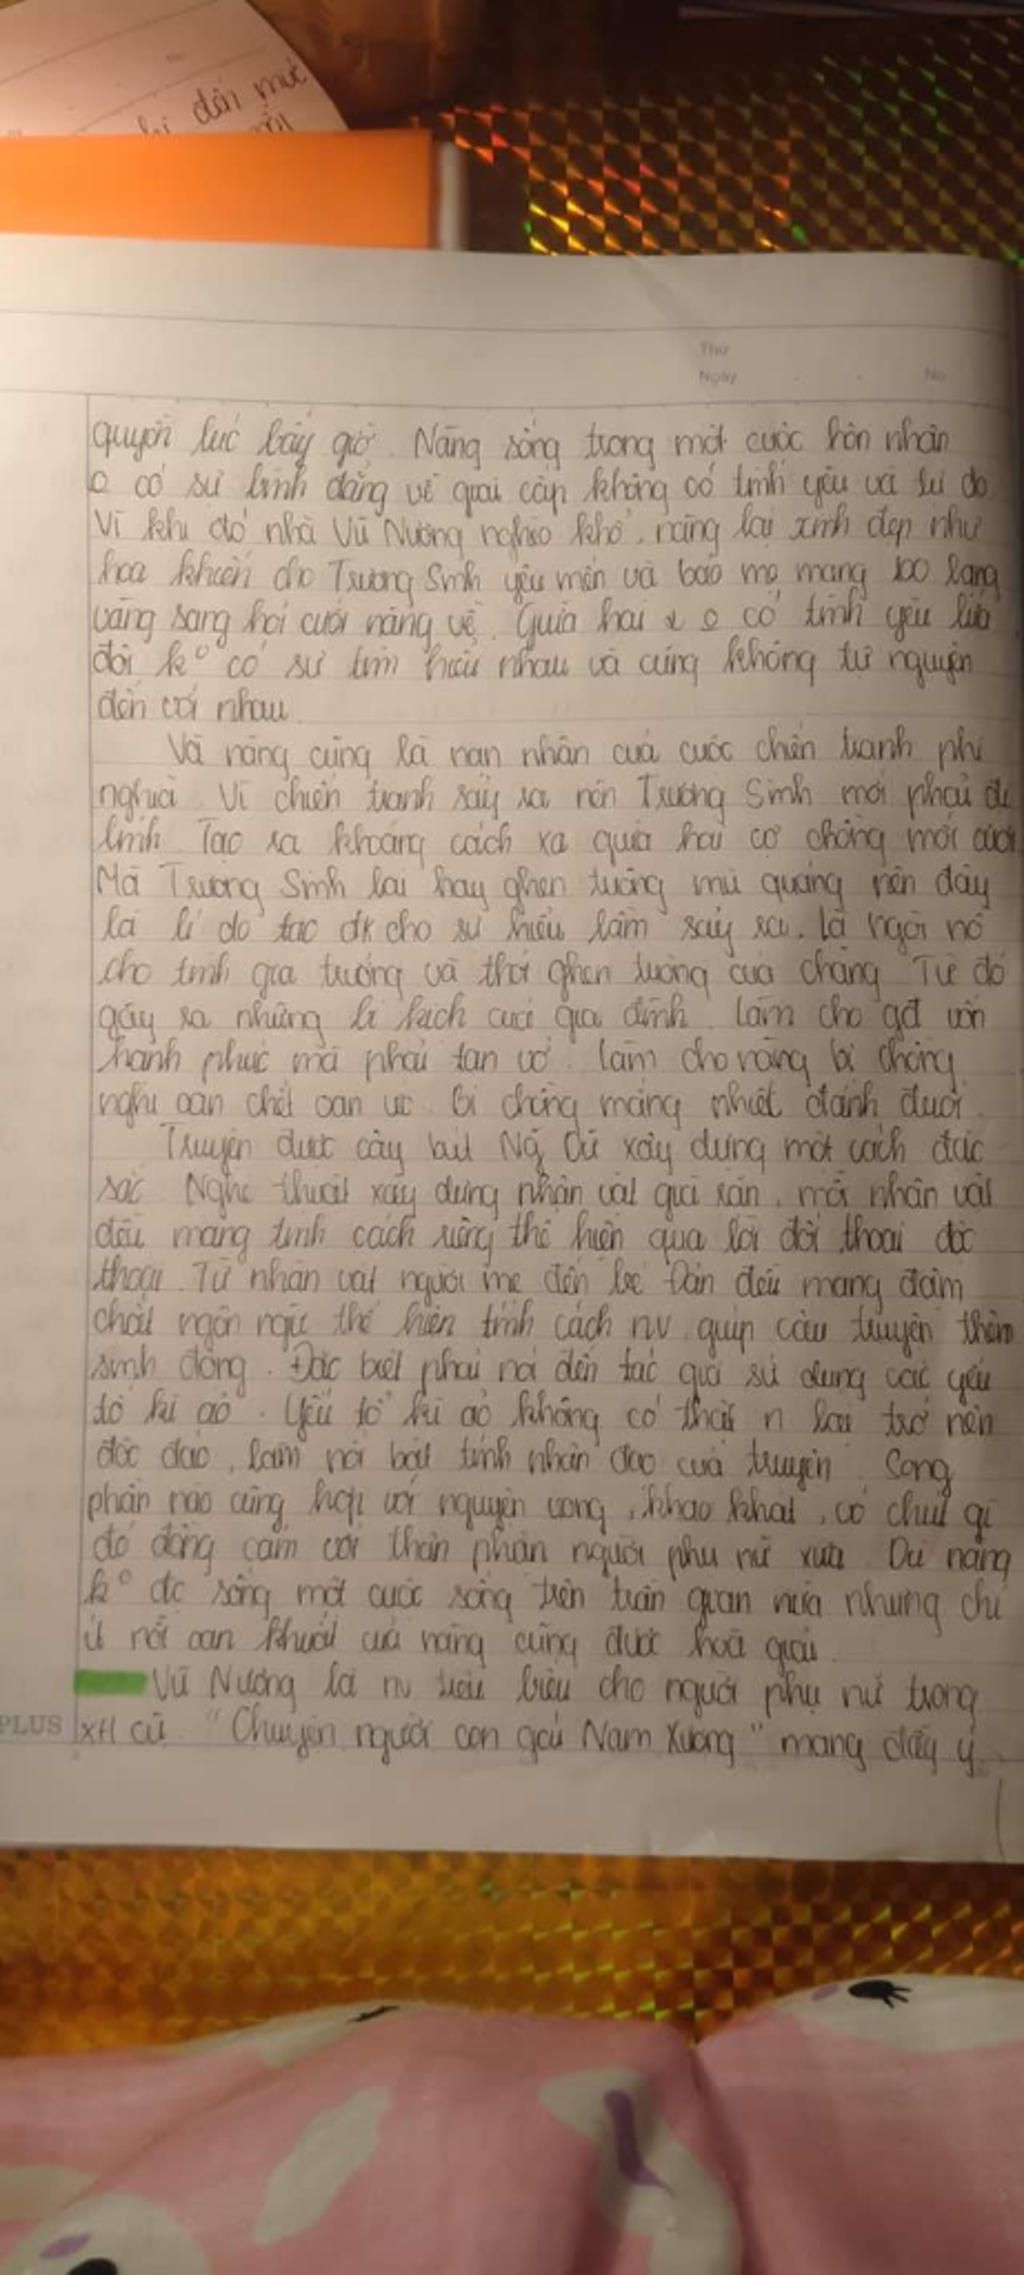 đến mức
Thứ
Ngày
No
quyền lực bấy giờ. Nàng sống trong một cuộc hôn nhân
o có sự bình đẳng về giai cấp không có tình yêu và tự do
Vì khi đó nhà Vũ Nương nghèo khổ, nàng lại xinh đẹp như
hoa khiến cho Trương Sinh yêu mến và bảo mẹ mang 100 lạng
vàng sang hỏi cưới nàng về. Giữa hai o có tình yêu lứa
đôi k° có sự tìm hiểu nhau và cũng không tự nguyện
đến với nhau.
Và nàng cũng là nạn nhân của cuộc chiến tranh phi
nghĩa. Vì chiến tranh sảy ra nên Trương Sinh mới phải đi
lính. Tạo ra khoảng cách xa giữa hai vợ chồng mới cưới
Mà Trương Sinh lại hay ghen tuông mù quáng nên đây
là lí do tạo đk cho sự hiểu lầm sảy ra. là ngòi nổ
cho tính gia trưởng và thói ghen tuông của chàng. Từ đó
gây ra những bi kịch của gia đình. Làm cho gđ vốn
hạnh phúc mà phải tan vỡ. Làm cho nàng bị chồng
nghi oan chết oan ức. bị chồng mắng nhiết đánh đuổi.
Truyện được cây bút Ng Dữ xây dựng một cách đặc
sắc. Nghệ thuật xây dựng nhân vật mỗi nhân vật
đều mang tính cách riêng thể hiện qua lời đối thoại độc
thoại. Từ nhân vật người mẹ đến bé Đản đều mang đậm
chất ngôn ngữ thể hiện tính cách nv, giúp câu truyện thêm
sinh động. Đặc biệt phải nói đến tác giả sử dụng các yếu
tố kì ảo. Yếu tố kì ảo không có thật n lại trở nên
độc đáo, làm nổi bật tính nhân đạo của truyện. Song
phần nào cũng hợp với nguyện vọng, khao khát, có chút gì
đó đồng cảm với thân phận người phụ nữ xưa. Dù nàng
k° đc sống một cuộc sống trên trần gian nữa nhưng chí
ít nỗi oan khuất của nàng cũng được hoá giải.
Vũ Nương là nv tiêu biểu cho người phụ nữ trong
PLUS
XH cũ. "Chuyện người con gái Nam Xương" mang đầy ý